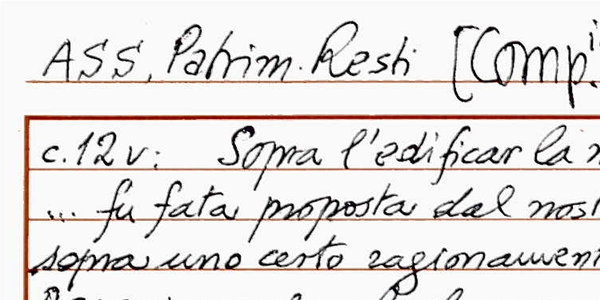 ASS, Patrim. Resti [Comp.
c.12v: Sopra l'edificar la
... fu fata proposta dal nost
sopra uno certo ragionamen